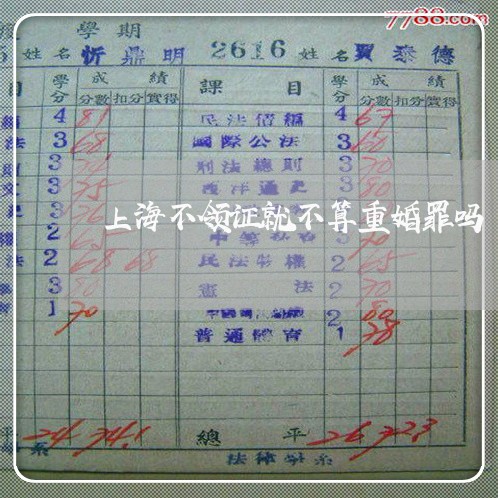 7788.com
學期
姓名 忻鼎明 2616 姓名 賈泰德
目 學分 成績 課目 學分 成績
分數 扣分 實得 分數 扣分 實得
4 81 民法債編 4 67
法 3 68 國際公法 3 60
3 刑法總則 3 70
3 75 西洋通史 3 80
3 76
上海不领证就不算重婚罪吗
2 65 70
法 2 68 68 民法物權 2 65
3 80 憲法 2 70
1 70 2 80
普通體育 1 78
平 24 74.1 總平 26 72.3
系 法律學系